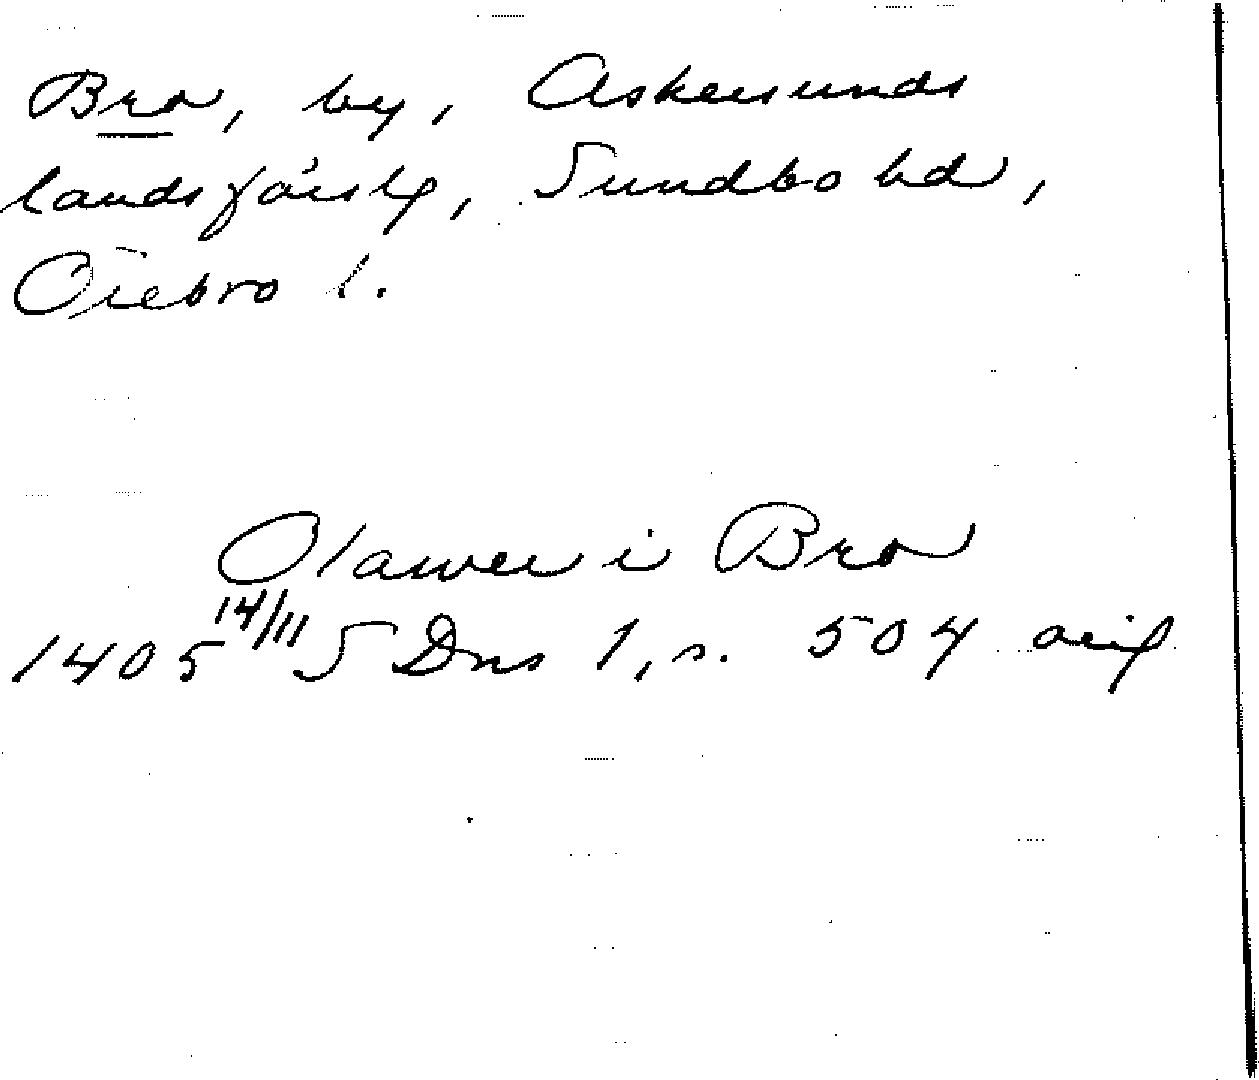 Bro, by, Askersunds
landsförslg, Sundbo hd,
Örebro l.
Olawer i Bro
1405 14/11 SDns 1, s. 504 orig